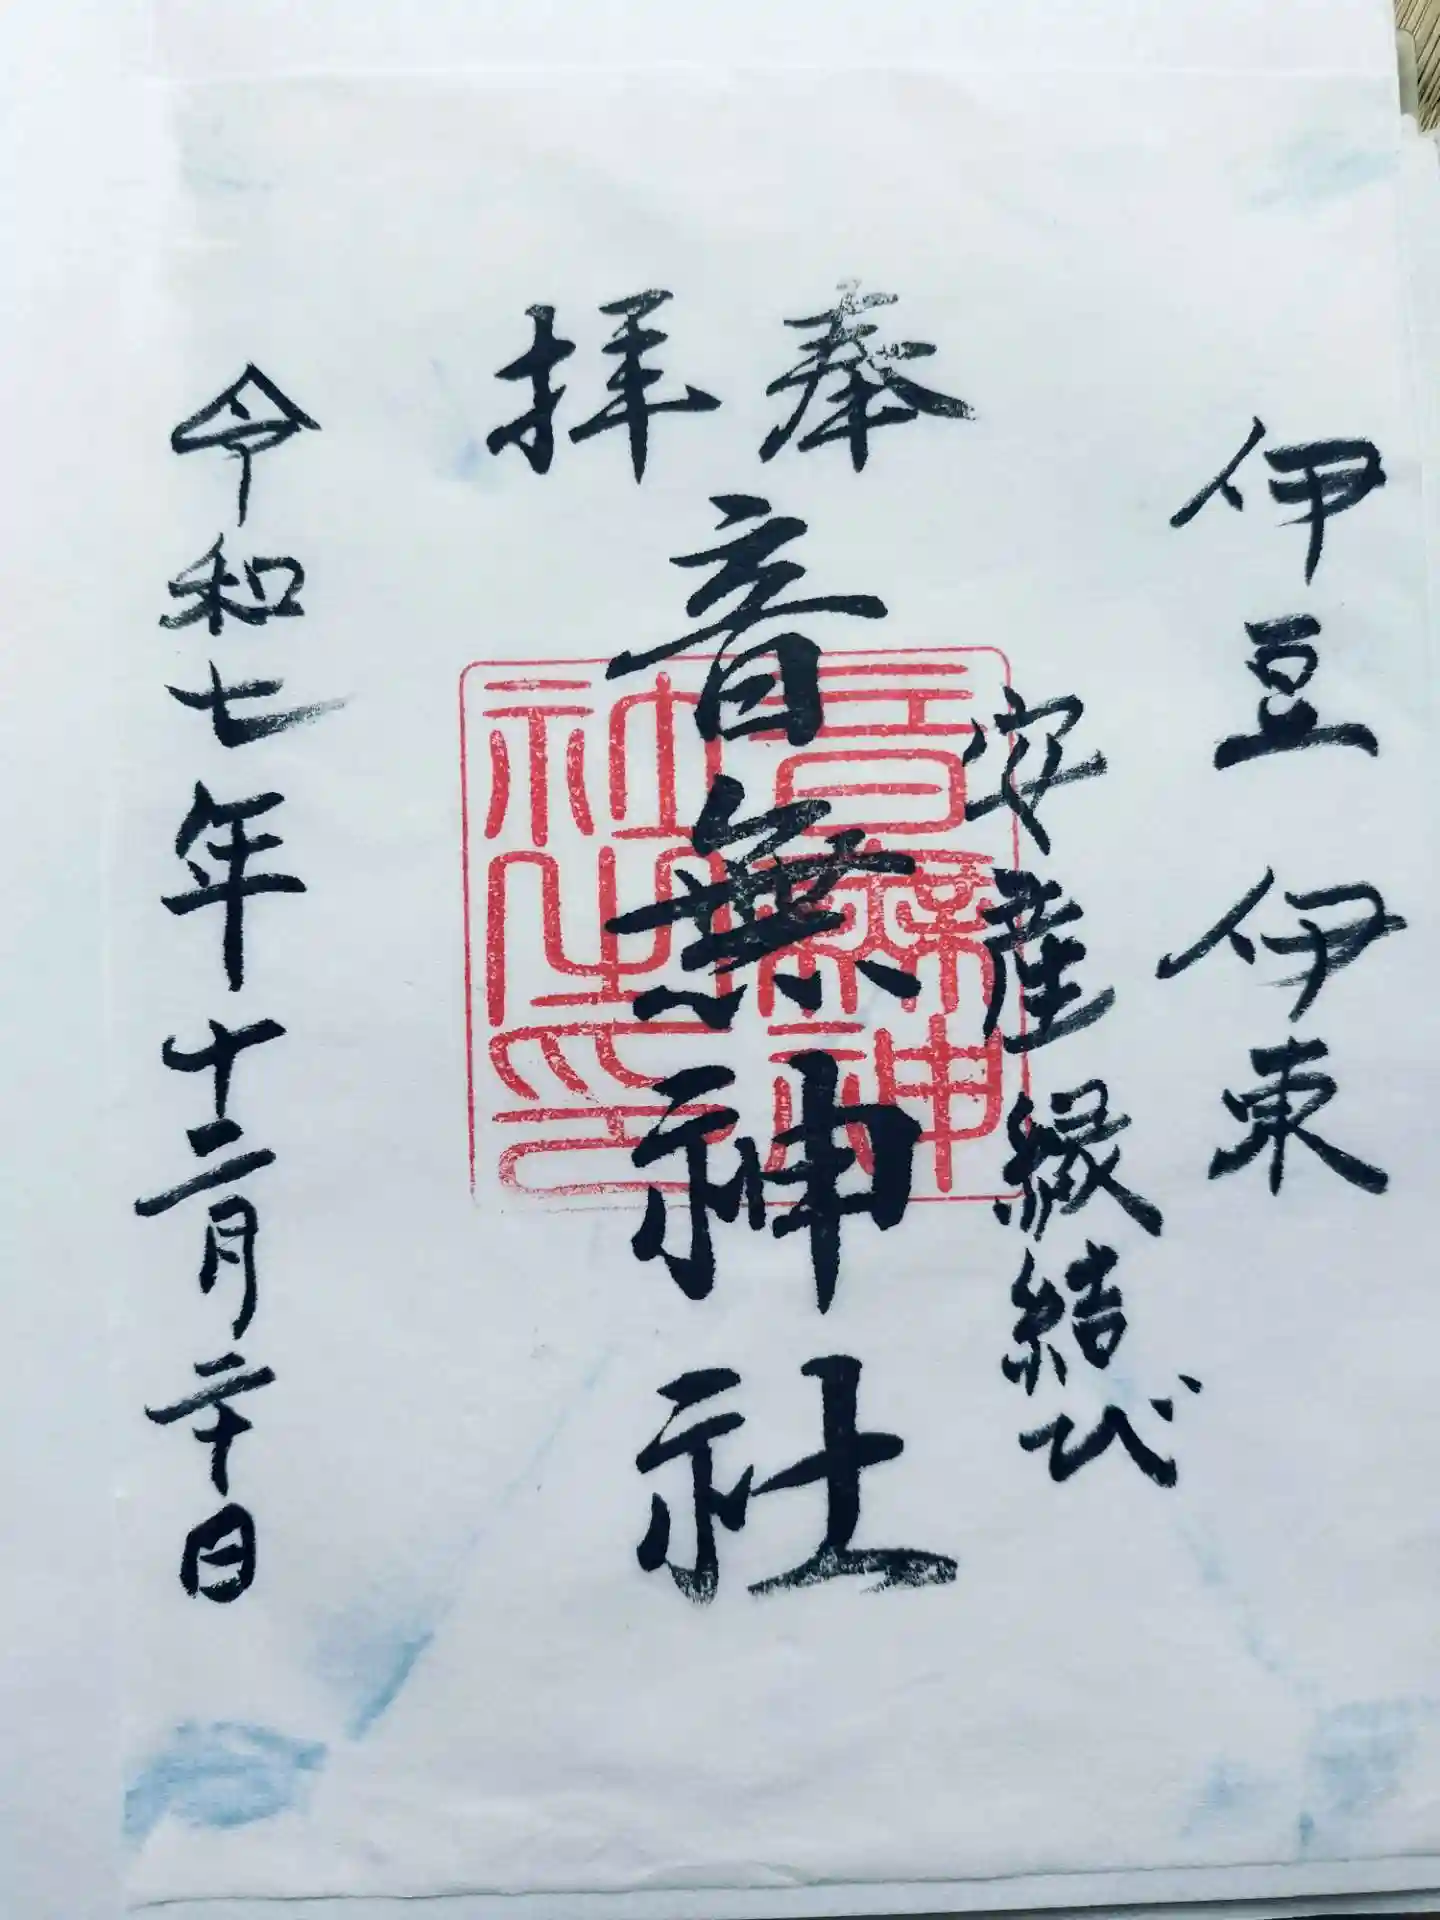 伊豆伊東
安産縁結び
奉拝
音無神社
音無神社之印
令和七年十二月二十日